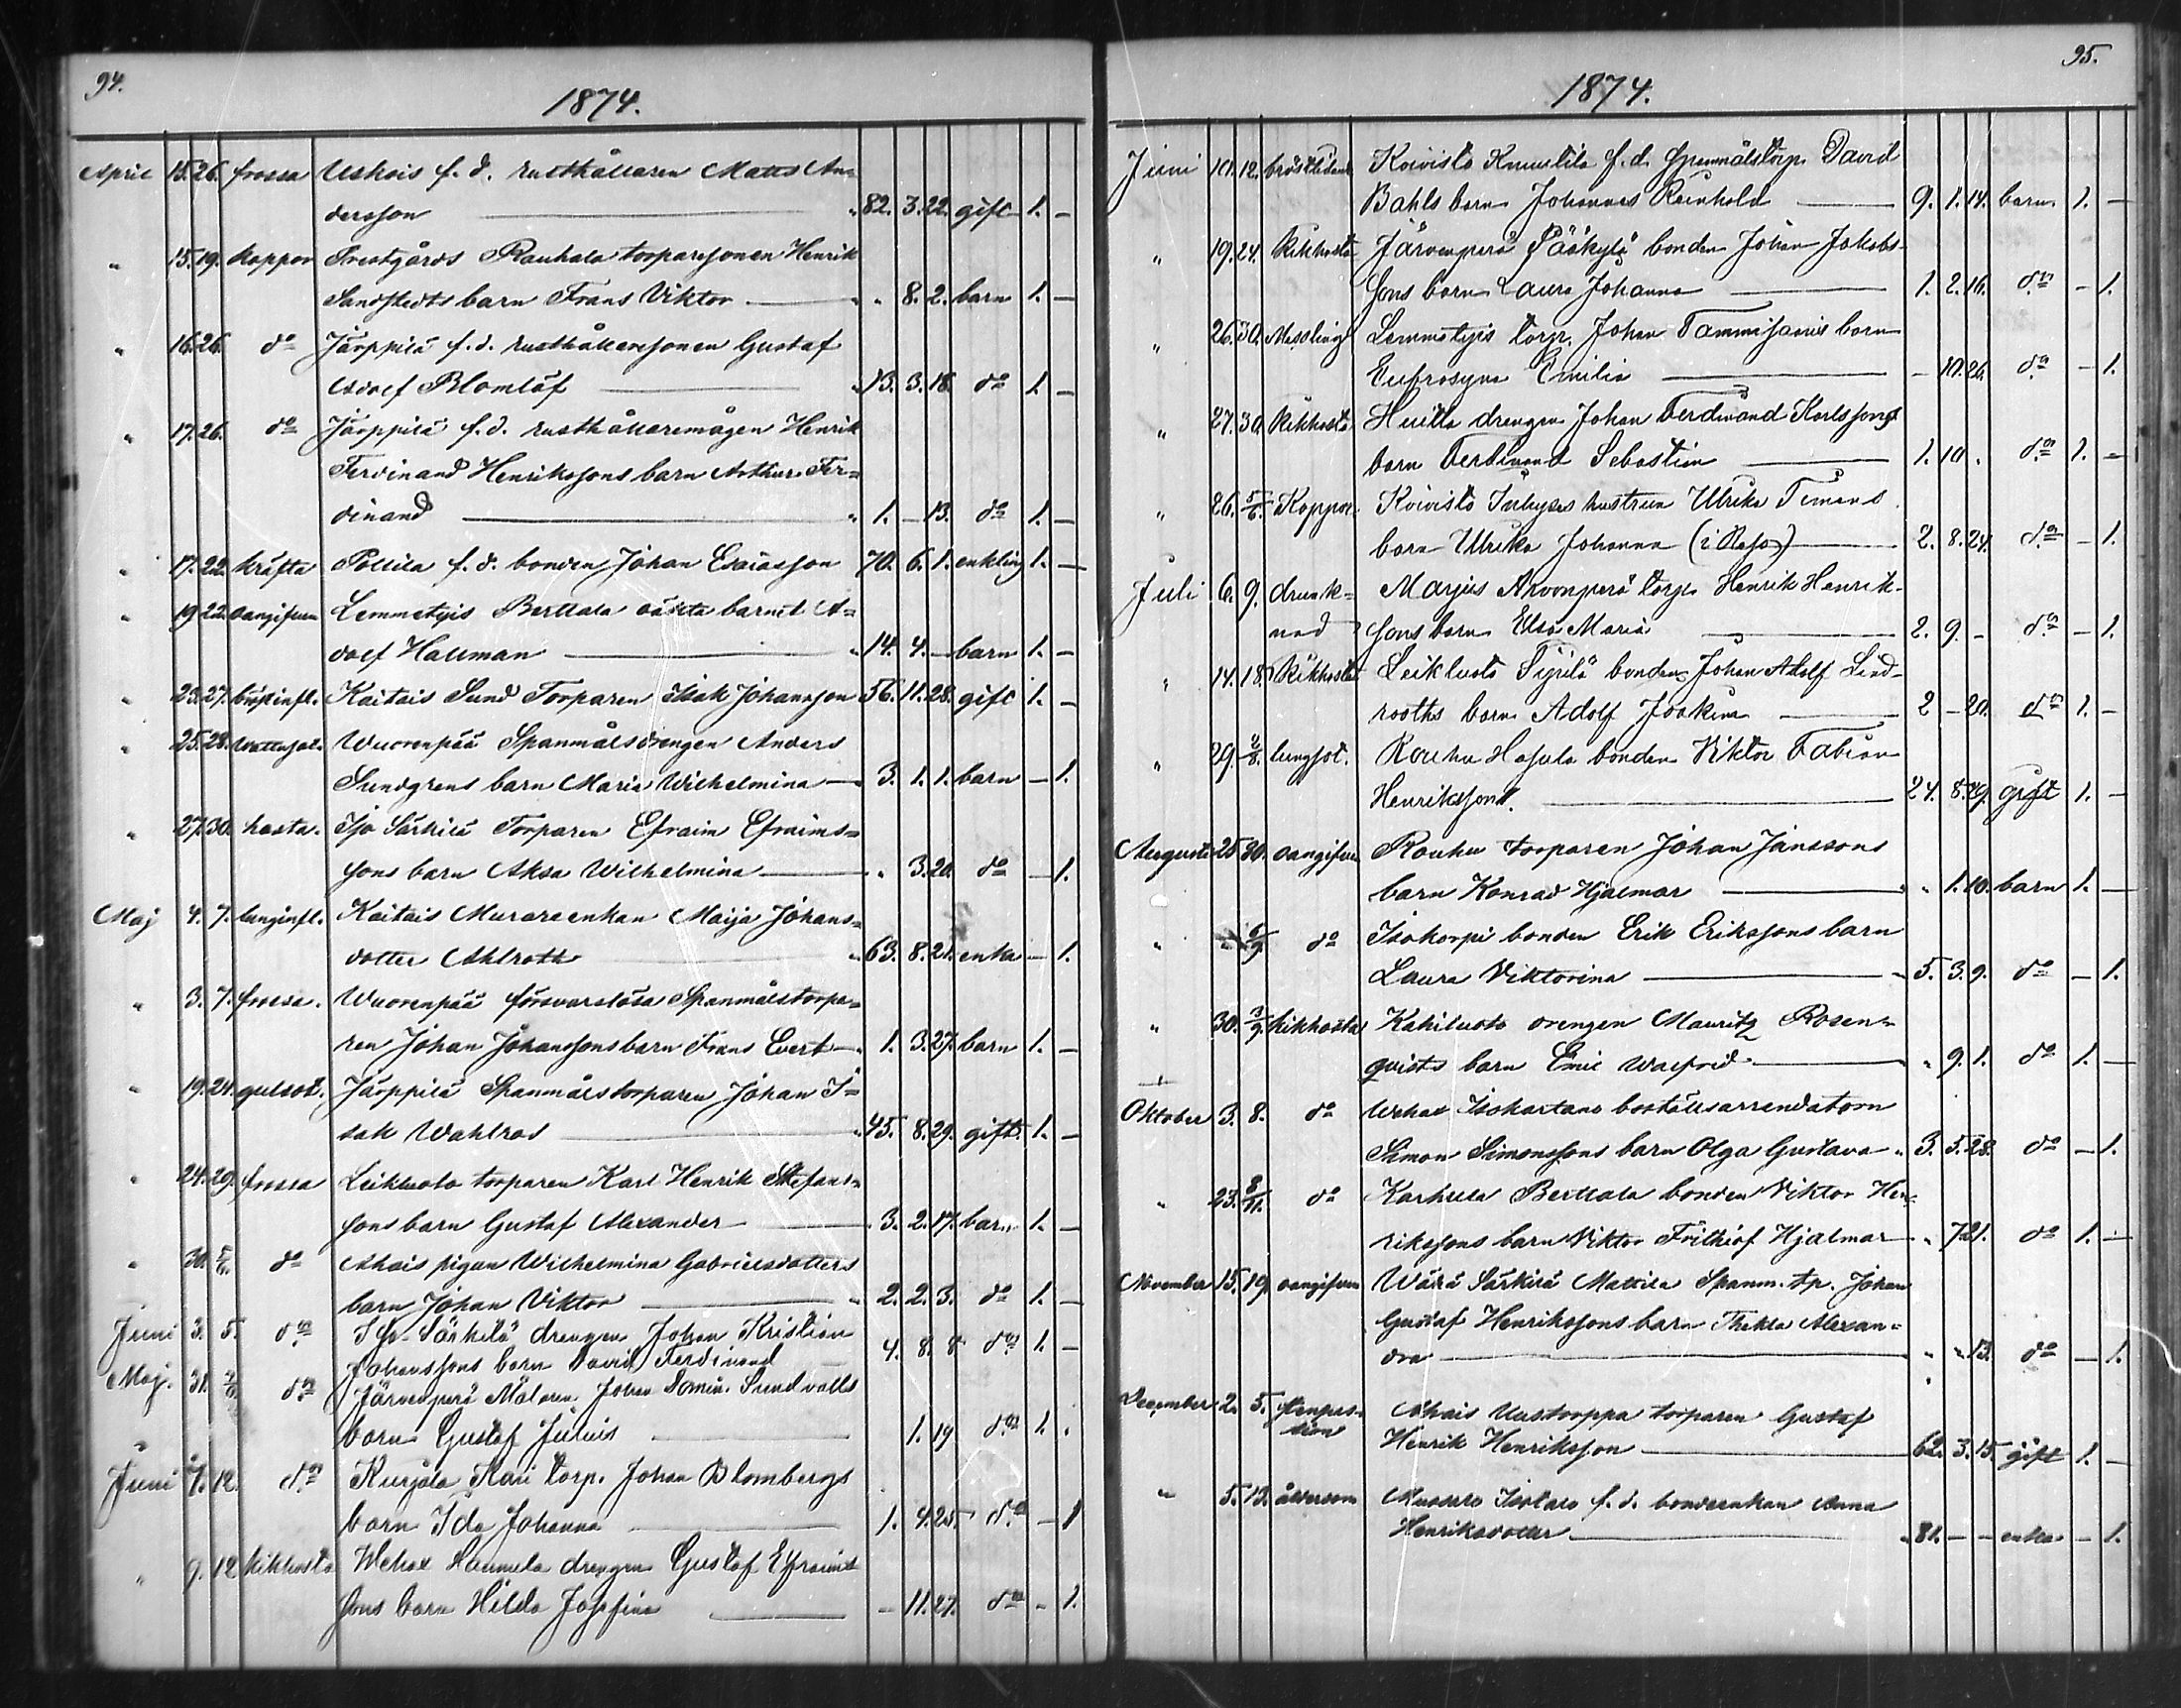 94.
1874.
April 15. 26. frossa Uskois f. d. rusthållaren Matts An-
dersson 82. 3. 22. gift 1. —
" 15. 19. koppor Prestgårds Rauhala torparesonen Henrik
Sandstedts barn Frans Viktor " 8. 2. barn 1. —
" 16. 26. do Järppilä f. d. rusthållaresonen Gustaf
Adolf Blomlöf 13. 3. 18. do 1. —
" 17. 26. do Järppilä f. d. rusthållaremågen Henrik
Ferdinand Henrikssons barn Arthur Fer=
dinand 1. — 13. do 1. —
" 17. 22. kräfta Pollila f. d. bonden Johan Esaiasson 70. 6. 1. enkling 1. —
" 19. 22. oangifven Lemmetyis Berttala oäkta barnet A=
dolf Hallman 14. 4. — barn 1. —
" 23. 27. bröstinfl. Kaitais Sund Torparen Isak Johansson 56. 11. 28. gift 1. —
" 25. 28. Wattusot. Wuorenpää Spanmålsdrengen Anders
Sundgrens barn Maria Wilhelmina 3. 1. 1. barn — 1.
" 27. 30. hosta. Iso Särkilä Torparen Efraim Efraims=
sons barn Aksa Wilhelmina " 3. 20. do — 1.
Maj 4. 7. lunginfl. Kaitais Murareenkan Maija Johans=
dotter Ahlroth 63. 8. 21. enka — 1.
" 3. 7. frossa. Wuorenpää försvarslösa Spanmålstorpa=
ren Johan Johanssons barn Frans Evert 1. 3. 27. barn 1. —
" 19. 24. gulsot. Järppilä Spanmålstorparen Johan I=
sak Wahlros 45. 8. 29. gift. 1. —
" 24. 29. frossa Leikluoto torparen Karl Henrik Stefans=
sons barn Gustaf Alexander 3. 2. 17. barn 1. —
" 30. 5/6. do Ahais pigan Wilhelmina Gabrielsdotters
barn Johan Viktor 2. 2. 3. do 1. —
Juni 3. 5. do Iso Särkilä drengen Johan Kristian
Johanssons barn David Ferdinand 4. 8. 8 do 1. —
Maj. 31. do Järvenperä Målaren Johan Sundvalls
barn Gustaf Julius 1. 19 do 1. .
Juni 7. 12. do Kurjala Kari torp. Johan Blombergs
barn Ida Johanna 1. 4. 25. do — 1
" 9. 12 kikhosta Wehax Hannula drengen Gustaf Efraims
sons barn Hilda Josefina — 11. 27. do — 1.
95.
1874.
Juni 10. 12. Koivisto Knuutila f. d. Spanmålstorp. David
Bahls barn Johannes Reinhold 9. 1. 14. barn 1. —
" 19. 24. Kikhosta Järvenperä Pääkylä bonden Johan Jakobs-
sons barn Laura Johanna 1. 2. 16. do — 1.
" 26. 30. Messling Lemmetyis torp. Johan Tammisaaris barn
Eufrosyna Emilia — 10. 26. do — 1.
" 27. 30. Kikhosta Huitla drengen Johan Ferdinand Karlssons
barn Ferdinand Sebastian 1. 10 . do 1. —
" 26. 5/6. Koppor Koivisto hustrun Ulrika Timans
barn Ulrika Johanna 2. 8. 24. do — 1.
Juli 6. 9. drunk= Marjus Arvonperä torp. Henrik Henrik-
nad sons barn Elsa Maria 2. 9. — do — 1.
" 14. 18. Kikhosta Leikluoto Sigrilä bonden Johan Adolf Lind-
rooths barn Adolf Joakim 2 — 20. do 1. —
" 29. 2/8. lungsot. Rauhu Hasula bonden Viktor Fabian
Henriksson 24. 8. 29. gift 1. —
Augusti 25 30. oangifven Rauhu torparen Johan Janssons
barn Konrad Hjalmar " 1. 10. barn 1. —
" 6/9. do Isokorpi bonden Erik Erikssons barn
Laura Viktorina 5. 3. 9. do — 1.
" 30. 3/9. kikhosta Kahiluoto drengen Mauritz Rosen=
qvists barn Emil Walfrid " 9. 1. do 1. —
Oktober 3. 8. do Wehax Isokartano boställsarrendatorn
Simon Simonssons barn Olga Gustava " 3. 5. 28. do — 1.
" 23. 8/11. do Karhula Berttala bonden Viktor Hen=
rikssons barn Viktor Frithiof Hjalmar " 7. 21. do 1. —
November 15. 19. oangifven Wähä Särkilä Mattila Spanm. tp. Johan
Gustaf Henrikssons barn Thekla Alexan=
dra " " 13. do — 1.
December 2. 5. stenpas=
sion Ahais Uustorppa torparen Gustaf
Henrik Henriksson 62. 3. 15. gift 1. —
" 5. 13. ålderdom Isotalo f. d. bondeenkan Anna
Henriksdotter 81. — — enka — 1.